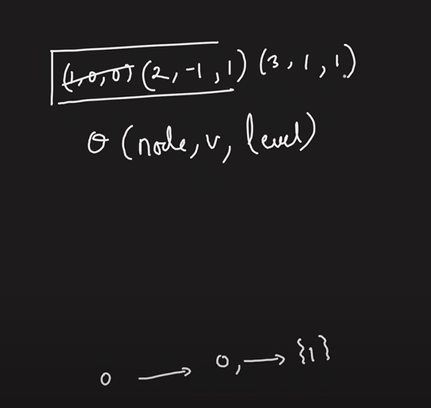 (1,0,0) (2,-1,1) (3,1,1)
θ (node, v, level)
0 → 0, → {1}